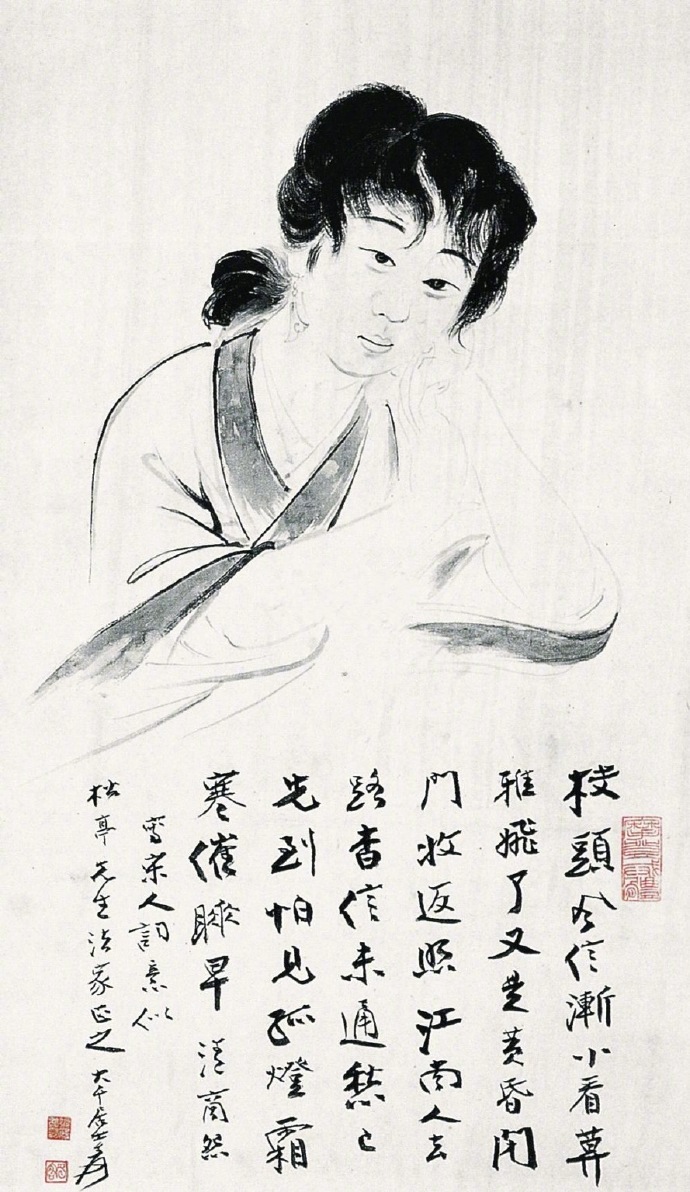 枝頭風信漸小看莫
雅飛了又是黃昏閉
門收返照江南人去
路杳信未通愁已
先到怕見孤燈霜
寒催睡早 清商怨
寫宋人詞意似
松亭先生法家正之 大千居士爰